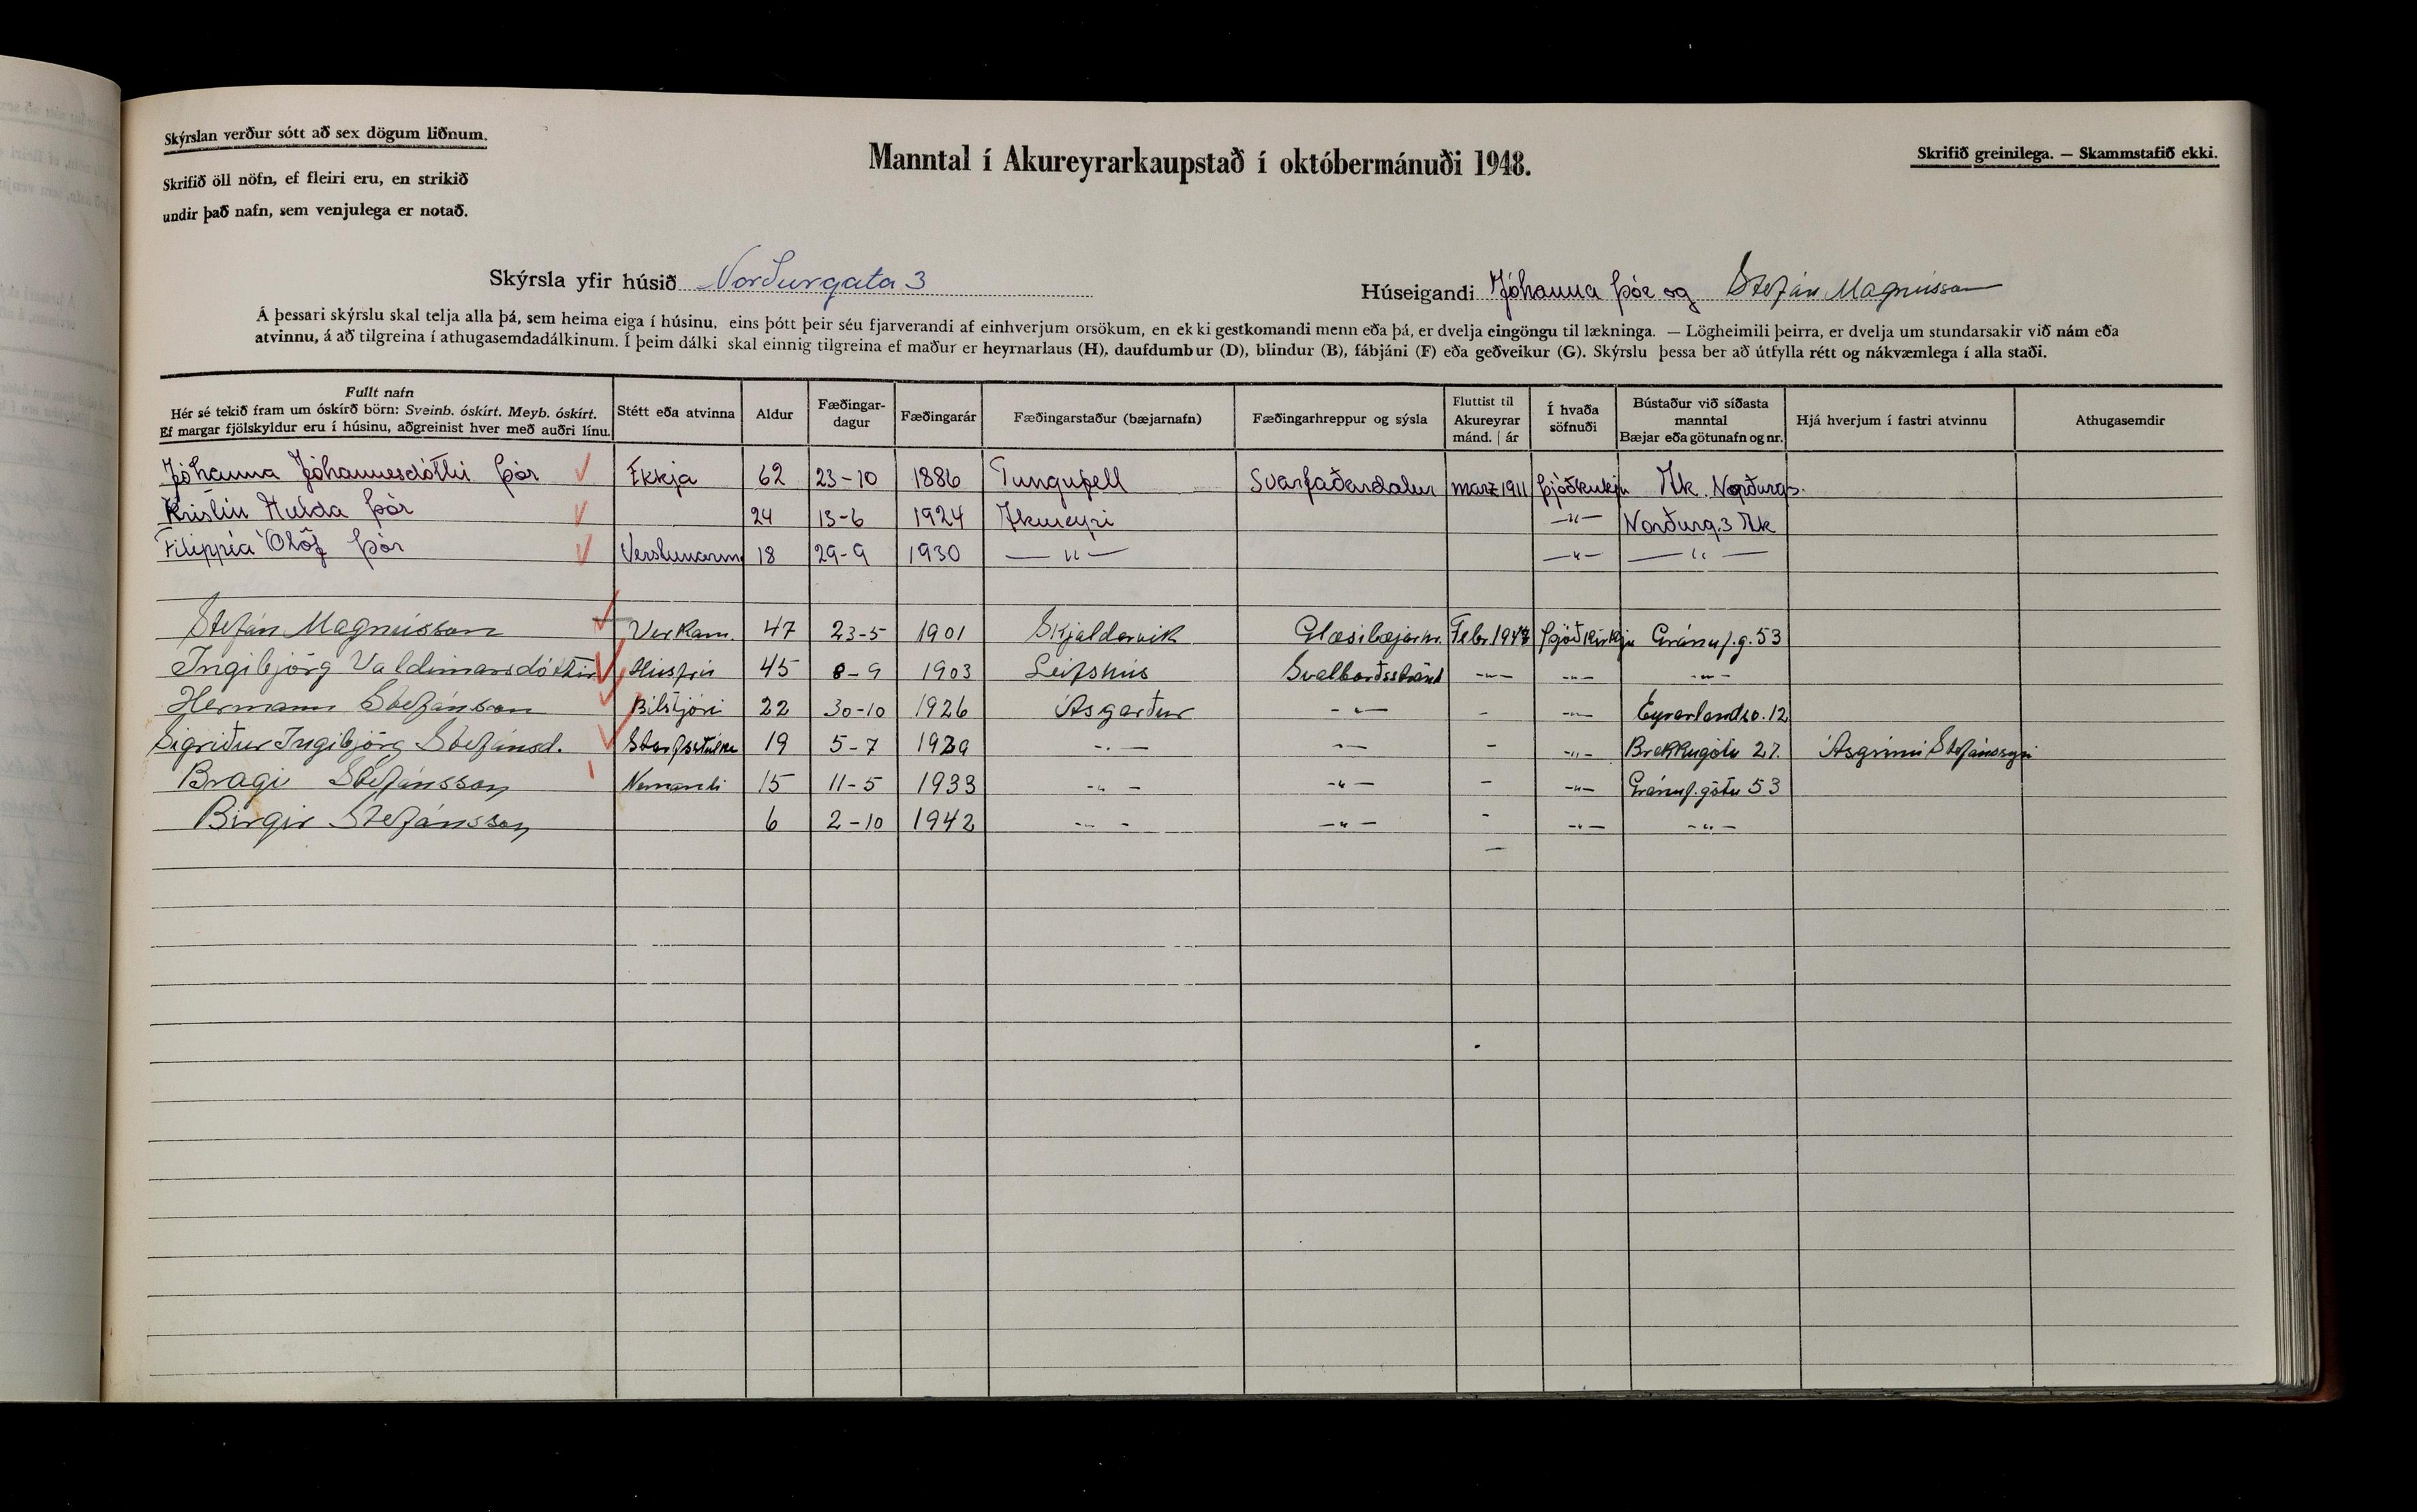 Skýrslan verður sótt að sex dögum liðnum.
Skrifið öll nöfn, ef fleiri eru, en strikið
undir það nafn, sem venjulega er notað.
Manntal í Akureyrarkaupstað í októbermánuði 1948.
Skrifið greinilega. — Skammstafið ekki.
Skýrsla yfir húsið Norðurgata 3
Húseigandi Jóhanna Þór og Stefán Magnússon
Á þessari skýrslu skal telja alla þá, sem heima eiga í húsinu, eins þótt þeir séu fjarverandi af einhverjum orsökum, en ekki gestkomandi menn eða þá, er dvelja eingöngu til lækninga. — Lögheimili þeirra, er dvelja um stundarsakir við nám eða
atvinnu, á að tilgreina í athugasemdadálkinum. Í þeim dálki skal einnig tilgreina ef maður er heyrnarlaus (H), daufdumbur (D), blindur (B), fábjáni (F) eða geðveikur (G). Skýrslu þessa ber að útfylla rétt og nákvæmlega í alla staði.
Fullt nafn
Hér sé tekið fram um óskírð börn: Sveinb. óskírt. Meyb. óskírt.
Ef margar fjölskyldur eru í húsinu, aðgreinist hver með auðri línu.
Stétt eða atvinna
Aldur
Fæðingar-
dagur
Fæðingarár
Fæðingarstaður (bæjarnafn)
Fæðingarhreppur og sýsla
Fluttist til
Akureyrar
mánd. | ár
Í hvaða
söfnuði
Bústaður við síðasta
manntal
Bæjar eða götunafn og nr.
Hjá hverjum í fastri atvinnu
Athugasemdir
Jóhanna Jóhannesdóttir Þór Ekkja 62 23-10 1886 Tungufell Svarfaðardalur marz 1911 Þjóðkirkju Ak. Norðurg 3.
Kristín Hulda Þór 24 13-6 1924 Akureyri —"— Norðurg. 3 Ak
Filippía Ólöf Þór Verslunarm 18 29-9 1930 —"— —"— —"—
Stefán Magnússon Verkam. 47 23-5 1901 Skjaldarvík Glæsibæjarhr. Febr. 1947 Þjóðkirkju Gránuf.g. 53
Ingibjörg Valdimarsdóttir Húsfrú 45 8-9 1903 Leifshús Svalbarðsströnd —"— —"— —"—
Hermann Stefánsson Bílstjóri 22 30-10 1926 Ásgarður —"— - —"— Eyrarlandsv. 12
Sigríður Ingibjörg Stefánsd. Starfsstúlka 19 5-7 1929 —"— —"— - —"— Brekkugötu 27. Ásgrími Stefánssyni
Bragi Stefánsson Nemandi 15 11-5 1933 —"— —"— - —"— Gránuf.götu 53
Birgir Stefánsson 6 2-10 1942 —"— —"— - —"— —"—